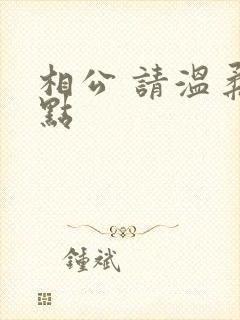 相公 請溫柔
點
鍾斌